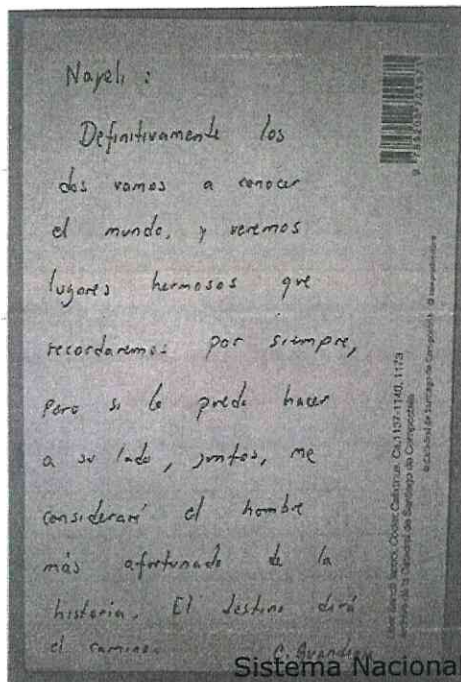 Nayeli :
Definitivamente los
dos vamos a conocer
el mundo, y veremos
lugares hermosos que
recordaremos por siempre,
Pero si lo puedo hacer
a su lado, juntos, me
consideraré el hombre
más afortunado de la
historia. El destino dirá
el camino. C.
Liber Sancti Iacobi. Códex Calixtinus. Ca. 1137-1140, 1173
Archivo de la Catedral de Santiago de Compostela
© Catedral de Santiago de Compostela
Sistema Nacional